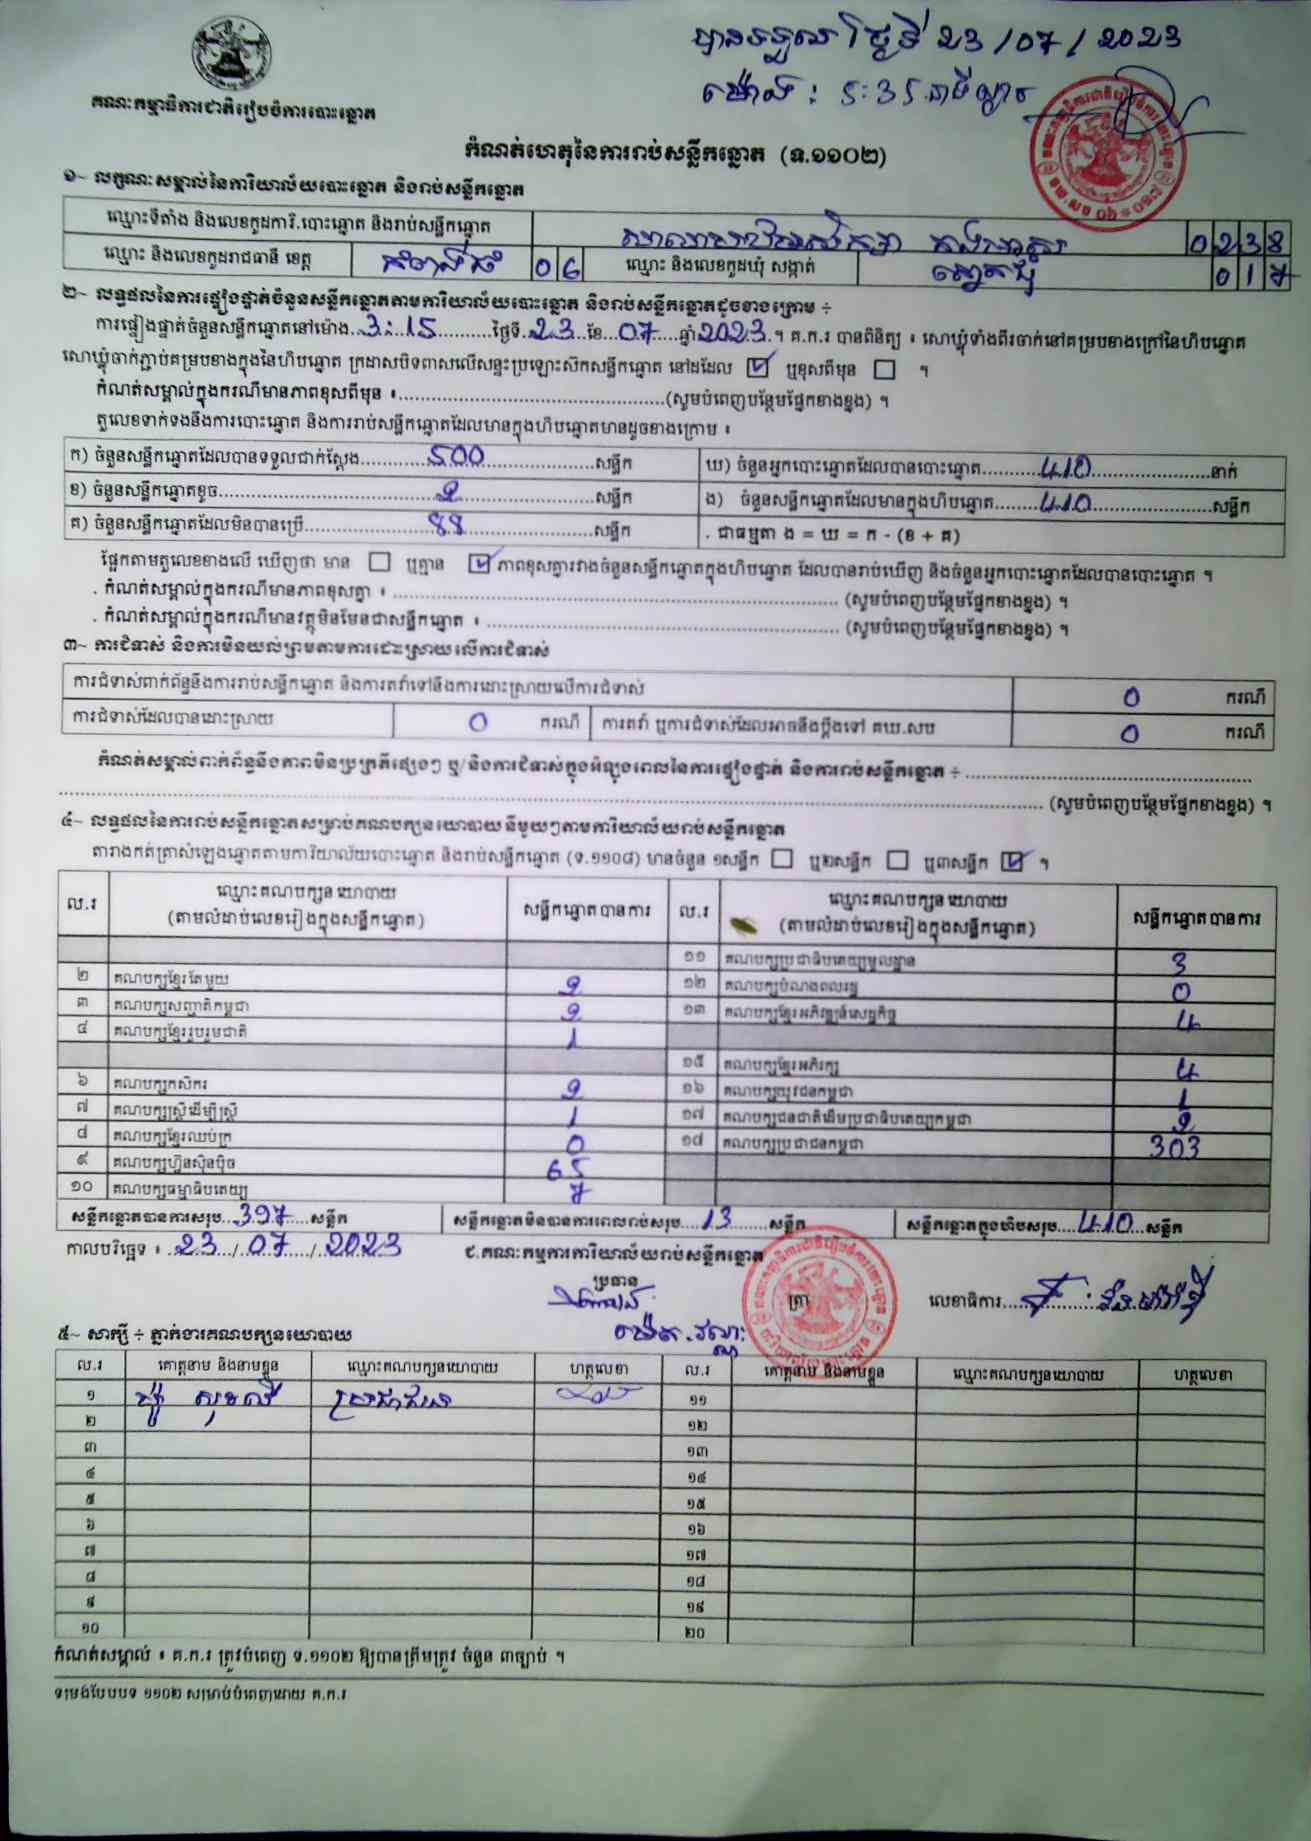 បានទទួលនៅថ្ងៃទី 23/07/2023
ម៉ោង : 5:35 នាទីល្ងាច
គណៈកម្មាធិការជាតិរៀបចំការបោះឆ្នោត
កំណត់ហេតុនៃការរាប់សន្លឹកឆ្នោត (ទ.១១០២)
១~ លក្ខណៈសម្គាល់នៃការិយាល័យបោះឆ្នោត និងរាប់សន្លឹកឆ្នោត
ឈ្មោះទីតាំង និងលេខកូដការិ.បោះឆ្នោត និងរាប់សន្លឹកឆ្នោត 0238
ឈ្មោះ និងលេខកូដរាជធានី ខេត្ត កំពង់ធំ 06 ឈ្មោះ និងលេខកូដឃុំ សង្កាត់ 017
២~ លទ្ធផលនៃការផ្ទៀងផ្ទាត់ចំនួនសន្លឹកឆ្នោតតាមការិយាល័យបោះឆ្នោត និងរាប់សន្លឹកឆ្នោតដូចខាងក្រោម ÷
ការផ្ទៀងផ្ទាត់ចំនួនសន្លឹកឆ្នោតនៅម៉ោង 3:15 ថ្ងៃទី 23 ខែ 07 ឆ្នាំ 2023 ។ គ.ក.រ បានពិនិត្យ ៖ សោឃ្លុំទាំងពីរចាក់នៅគម្របខាងក្រៅនៃហិបឆ្នោត
សោឃ្លុំចាក់ភ្ជាប់គម្របខាងក្នុងនៃហិបឆ្នោត ក្រដាសបិទពាសលើសន្ទះប្រឡោះស៊កសន្លឹកឆ្នោត នៅដដែល ☑ ឬខុសពីមុន ☐ ។
កំណត់សម្គាល់ក្នុងករណីមានភាពខុសពីមុន ៖ (សូមបំពេញបន្ថែមផ្នែកខាងខ្នង) ។
តួលេខទាក់ទងនឹងការបោះឆ្នោត និងការរាប់សន្លឹកឆ្នោតដែលមានក្នុងហិបឆ្នោតមានដូចខាងក្រោម ៖
ក) ចំនួនសន្លឹកឆ្នោតដែលបានទទួលជាក់ស្តែង 500 សន្លឹក ឃ) ចំនួនអ្នកបោះឆ្នោតដែលបានបោះឆ្នោត 410 នាក់
ខ) ចំនួនសន្លឹកឆ្នោតខូច 2 សន្លឹក ង) ចំនួនសន្លឹកឆ្នោតដែលមានក្នុងហិបឆ្នោត 410 សន្លឹក
គ) ចំនួនសន្លឹកឆ្នោតដែលមិនបានប្រើ 88 សន្លឹក . ជាធម្មតា ង = ឃ = ក - (ខ + គ)
ផ្អែកតាមតួលេខខាងលើ ឃើញថា មាន ☐ ឬគ្មាន ☑ ភាពខុសគ្នារវាងចំនួនសន្លឹកឆ្នោតក្នុងហិបឆ្នោត ដែលបានរាប់ឃើញ និងចំនួនអ្នកបោះឆ្នោតដែលបានបោះឆ្នោត ។
. កំណត់សម្គាល់ក្នុងករណីមានភាពខុសគ្នា ៖ (សូមបំពេញបន្ថែមផ្នែកខាងខ្នង) ។
. កំណត់សម្គាល់ក្នុងករណីមានវត្ថុមិនមែនជាសន្លឹកឆ្នោត ៖ (សូមបំពេញបន្ថែមផ្នែកខាងខ្នង) ។
៣~ ការជំទាស់ និងការមិនយល់ព្រមតាមការដោះស្រាយ លើការជំទាស់
ការជំទាស់ពាក់ព័ន្ធនឹងការរាប់សន្លឹកឆ្នោត និងការតវ៉ាទៅនឹងការដោះស្រាយលើការជំទាស់ 0 ករណី
ការជំទាស់ដែលបានដោះស្រាយ 0 ករណី ការតវ៉ា ឬការជំទាស់ដែលអាចនឹងប្តឹងទៅ គឃ.សប 0 ករណី
កំណត់សម្គាល់ពាក់ព័ន្ធនឹងភាពមិនប្រក្រតីផ្សេងៗ ឬ/និងការជំទាស់ក្នុងអំឡុងពេលនៃការផ្ទៀងផ្ទាត់ និងការរាប់សន្លឹកឆ្នោត ÷
(សូមបំពេញបន្ថែមផ្នែកខាងខ្នង) ។
៤~ លទ្ធផលនៃការរាប់សន្លឹកឆ្នោតសម្រាប់គណបក្សនយោបាយនីមួយៗតាមការិយាល័យរាប់សន្លឹកឆ្នោត
តារាងកត់ត្រាសំឡេងឆ្នោតតាមការិយាល័យបោះឆ្នោត និងរាប់សន្លឹកឆ្នោត (ទ.១១០៨) មានចំនួន ១សន្លឹក ☐ ឬ២សន្លឹក ☐ ឬ៣សន្លឹក ☑ ។
ល.រ ឈ្មោះគណបក្សនយោបាយ (តាមលំដាប់លេខរៀងក្នុងសន្លឹកឆ្នោត) សន្លឹកឆ្នោតបានការ ល.រ ឈ្មោះគណបក្សនយោបាយ (តាមលំដាប់លេខរៀងក្នុងសន្លឹកឆ្នោត) សន្លឹកឆ្នោតបានការ
១១ គណបក្សប្រជាធិបតេយ្យមូលដ្ឋាន 3
២ គណបក្សខ្មែរតែមួយ 2 ១២ គណបក្សបំណងពលរដ្ឋ 0
៣ គណបក្សសញ្ជាតិកម្ពុជា 2 ១៣ គណបក្សខ្មែរអភិវឌ្ឍន៍សេដ្ឋកិច្ច 4
៤ គណបក្សខ្មែររួបរួមជាតិ 1
១៥ គណបក្សខ្មែរអភិរក្ស 4
៦ គណបក្សកសិករ 2 ១៦ គណបក្សយុវជនកម្ពុជា 1
៧ គណបក្សស្ត្រីដើម្បីស្ត្រី 1 ១៧ គណបក្សជនជាតិដើមប្រជាធិបតេយ្យកម្ពុជា 2
៨ គណបក្សខ្មែរឈប់ក្រ 0 ១៨ គណបក្សប្រជាជនកម្ពុជា 303
៩ គណបក្សហ៊្វុនស៊ិនប៉ិច 65
១០ គណបក្សធម្មាធិបតេយ្យ 7
សន្លឹកឆ្នោតបានការសរុប 397 សន្លឹក សន្លឹកឆ្នោតមិនបានការពេលរាប់សរុប 13 សន្លឹក សន្លឹកឆ្នោតក្នុងហិបសរុប 410 សន្លឹក
កាលបរិច្ឆេទ ៖ 23/07/2023 ជ.គណៈកម្មការការិយាល័យរាប់សន្លឹកឆ្នោត
ប្រធាន
ត្រា លេខាធិការ
៥~ សាក្សី ÷ ភ្នាក់ងារគណបក្សនយោបាយ
ល.រ គោត្តនាម និងនាមខ្លួន ឈ្មោះគណបក្សនយោបាយ ហត្ថលេខា ល.រ គោត្តនាម និងនាមខ្លួន ឈ្មោះគណបក្សនយោបាយ ហត្ថលេខា
១ ប្រជាជន ១១
២ ១២
៣ ១៣
៤ ១៤
៥ ១៥
៦ ១៦
៧ ១៧
៨ ១៨
៩ ១៩
១០ ២០
កំណត់សម្គាល់ ៖ គ.ក.រ ត្រូវបំពេញ ទ.១១០២ ឱ្យបានត្រឹមត្រូវ ចំនួន ៣ច្បាប់ ។
ទម្រង់បែបបទ ១១០២ សម្រាប់បំពេញដោយ គ.ក.រ